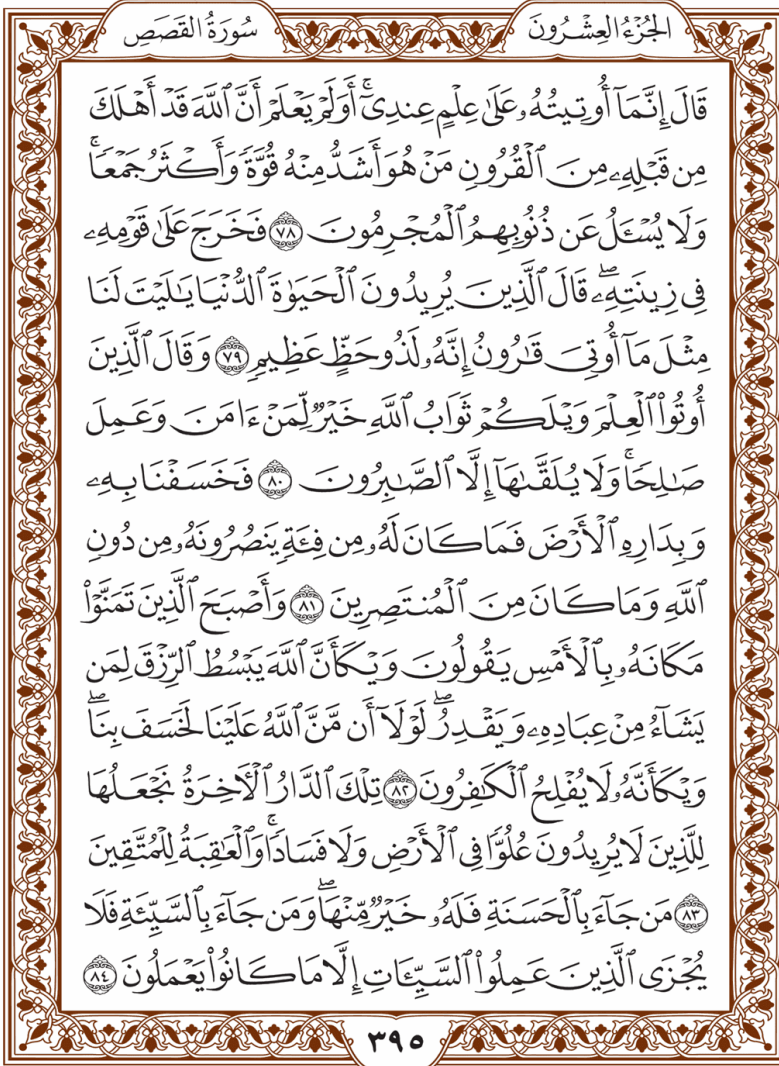 الجُزْءُ العِشْرُونَ
سُورَةُ القَصَصِ
قَالَ إِنَّمَآ أُوتِيتُهُۥ عَلَىٰ عِلْمٍ عِندِىٓۚ أَوَلَمْ يَعْلَمْ أَنَّ ٱللَّهَ قَدْ أَهْلَكَ
مِن قَبْلِهِۦ مِنَ ٱلْقُرُونِ مَنْ هُوَ أَشَدُّ مِنْهُ قُوَّةً وَأَكْثَرُ جَمْعًاۚ
وَلَا يُسْـَٔلُ عَن ذُنُوبِهِمُ ٱلْمُجْرِمُونَ ٧٨ فَخَرَجَ عَلَىٰ قَوْمِهِۦ
فِى زِينَتِهِۦۖ قَالَ ٱلَّذِينَ يُرِيدُونَ ٱلْحَيَوٰةَ ٱلدُّنْيَا يَـٰلَيْتَ لَنَا
مِثْلَ مَآ أُوتِىَ قَـٰرُونُ إِنَّهُۥ لَذُو حَظٍّ عَظِيمٍ ٧٩ وَقَالَ ٱلَّذِينَ
أُوتُوا۟ ٱلْعِلْمَ وَيْلَكُمْ ثَوَابُ ٱللَّهِ خَيْرٌ لِّمَنْ ءَامَنَ وَعَمِلَ
صَـٰلِحًاۚ وَلَا يُلَقَّىٰهَآ إِلَّا ٱلصَّـٰبِرُونَ ٨٠ فَخَسَفْنَا بِهِۦ
وَبِدَارِهِ ٱلْأَرْضَ فَمَا كَانَ لَهُۥ مِن فِئَةٍ يَنصُرُونَهُۥ مِن دُونِ
ٱللَّهِ وَمَا كَانَ مِنَ ٱلْمُنتَصِرِينَ ٨١ وَأَصْبَحَ ٱلَّذِينَ تَمَنَّوْا۟
مَكَانَهُۥ بِٱلْأَمْسِ يَقُولُونَ وَيْكَأَنَّ ٱللَّهَ يَبْسُطُ ٱلرِّزْقَ لِمَن
يَشَآءُ مِنْ عِبَادِهِۦ وَيَقْدِرُۖ لَوْلَآ أَن مَّنَّ ٱللَّهُ عَلَيْنَا لَخَسَفَ بِنَاۖ
وَيْكَأَنَّهُۥ لَا يُفْلِحُ ٱلْكَـٰفِرُونَ ٨٢ تِلْكَ ٱلدَّارُ ٱلْـَٔاخِرَةُ نَجْعَلُهَا
لِلَّذِينَ لَا يُرِيدُونَ عُلُوًّا فِى ٱلْأَرْضِ وَلَا فَسَادًاۚ وَٱلْعَـٰقِبَةُ لِلْمُتَّقِينَ
٨٣ مَن جَآءَ بِٱلْحَسَنَةِ فَلَهُۥ خَيْرٌ مِّنْهَاۖ وَمَن جَآءَ بِٱلسَّيِّئَةِ فَلَا
يُجْزَى ٱلَّذِينَ عَمِلُوا۟ ٱلسَّيِّـَٔاتِ إِلَّا مَا كَانُوا۟ يَعْمَلُونَ ٨٤
٣٩٥